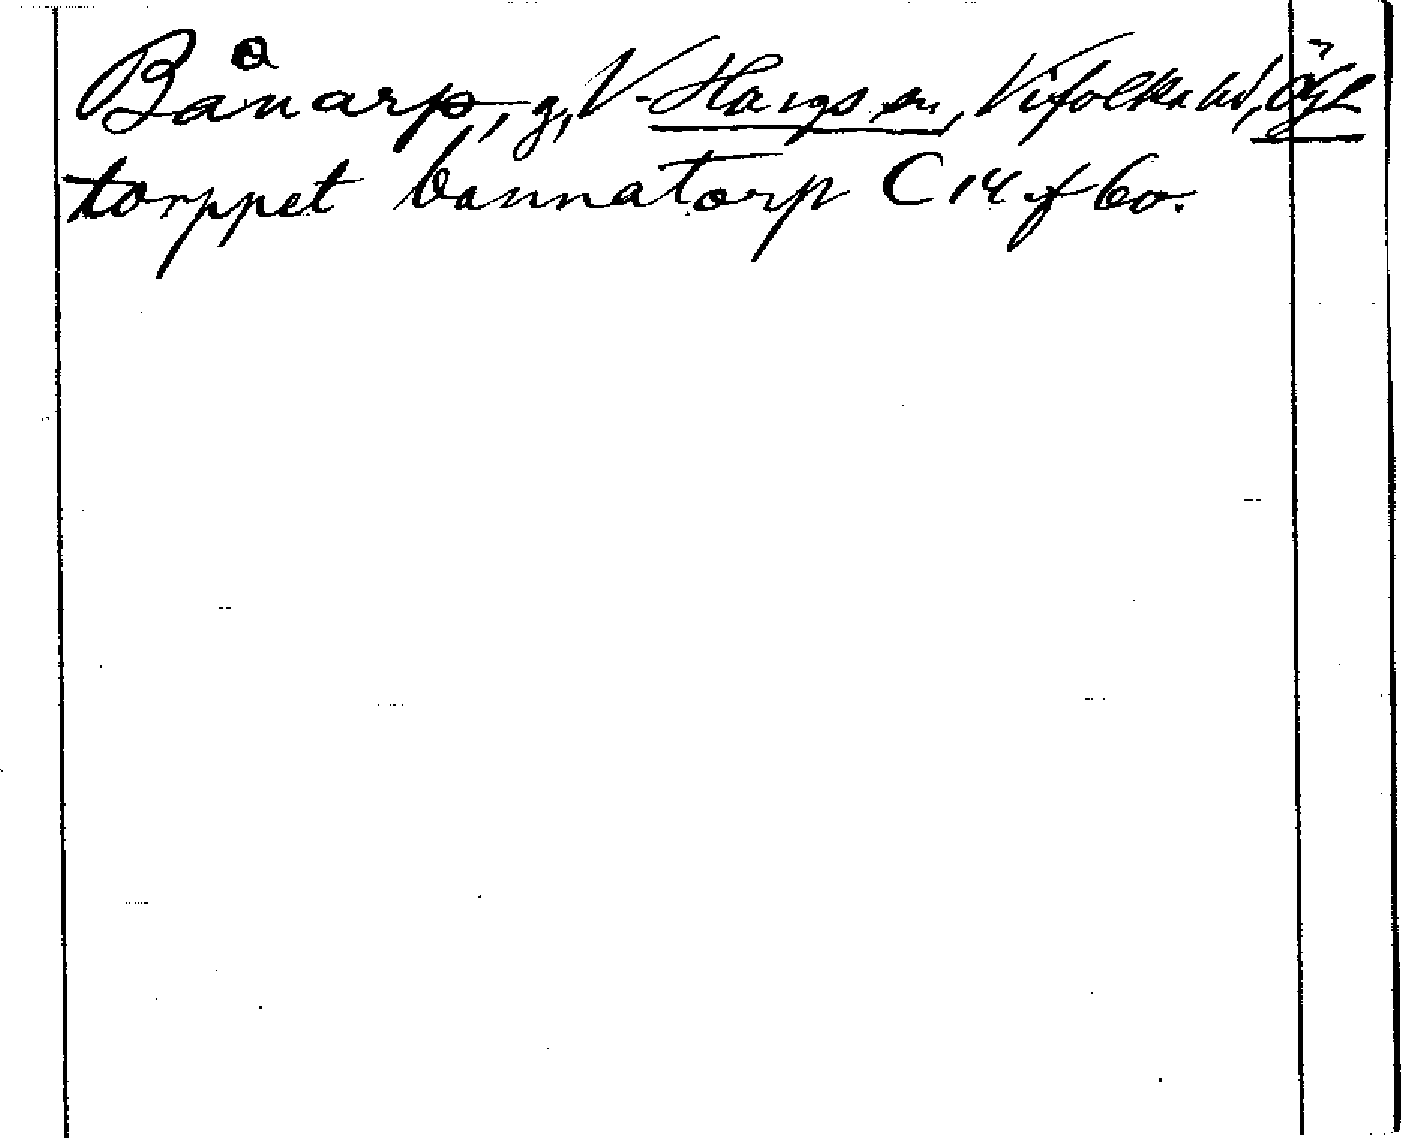 Bånarp, g, V. Hargs sn, Vifolka hd, Ögl
torppet bonnatorp C 14 f 60.